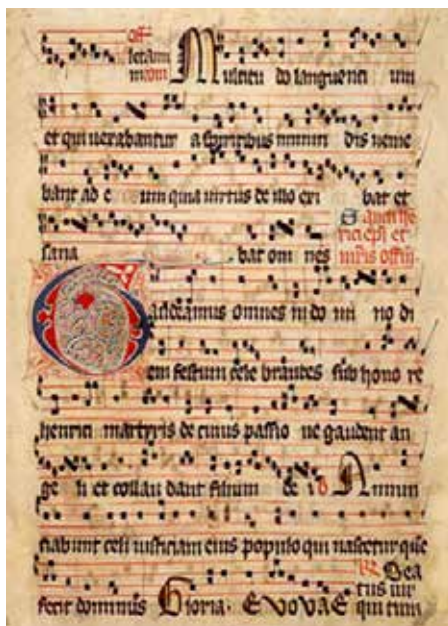 Multitu do languenti um
et qui uexabantur a spiritibus inmun dis uenie
bant ad e um quia uirtus de illo exi bat et
sana bat om nes
Gaudeamus omnes in do mi no di
em festum cele brantes sub hono re
henrici martyris de cuius passio ne gaudent an
ge li et collau dant filium de i Annun
ciabunt celi iusticiam eius populo qui nascetur que
Bea
tus uir
fecit dominus Gloria. EVOVAE qui timi